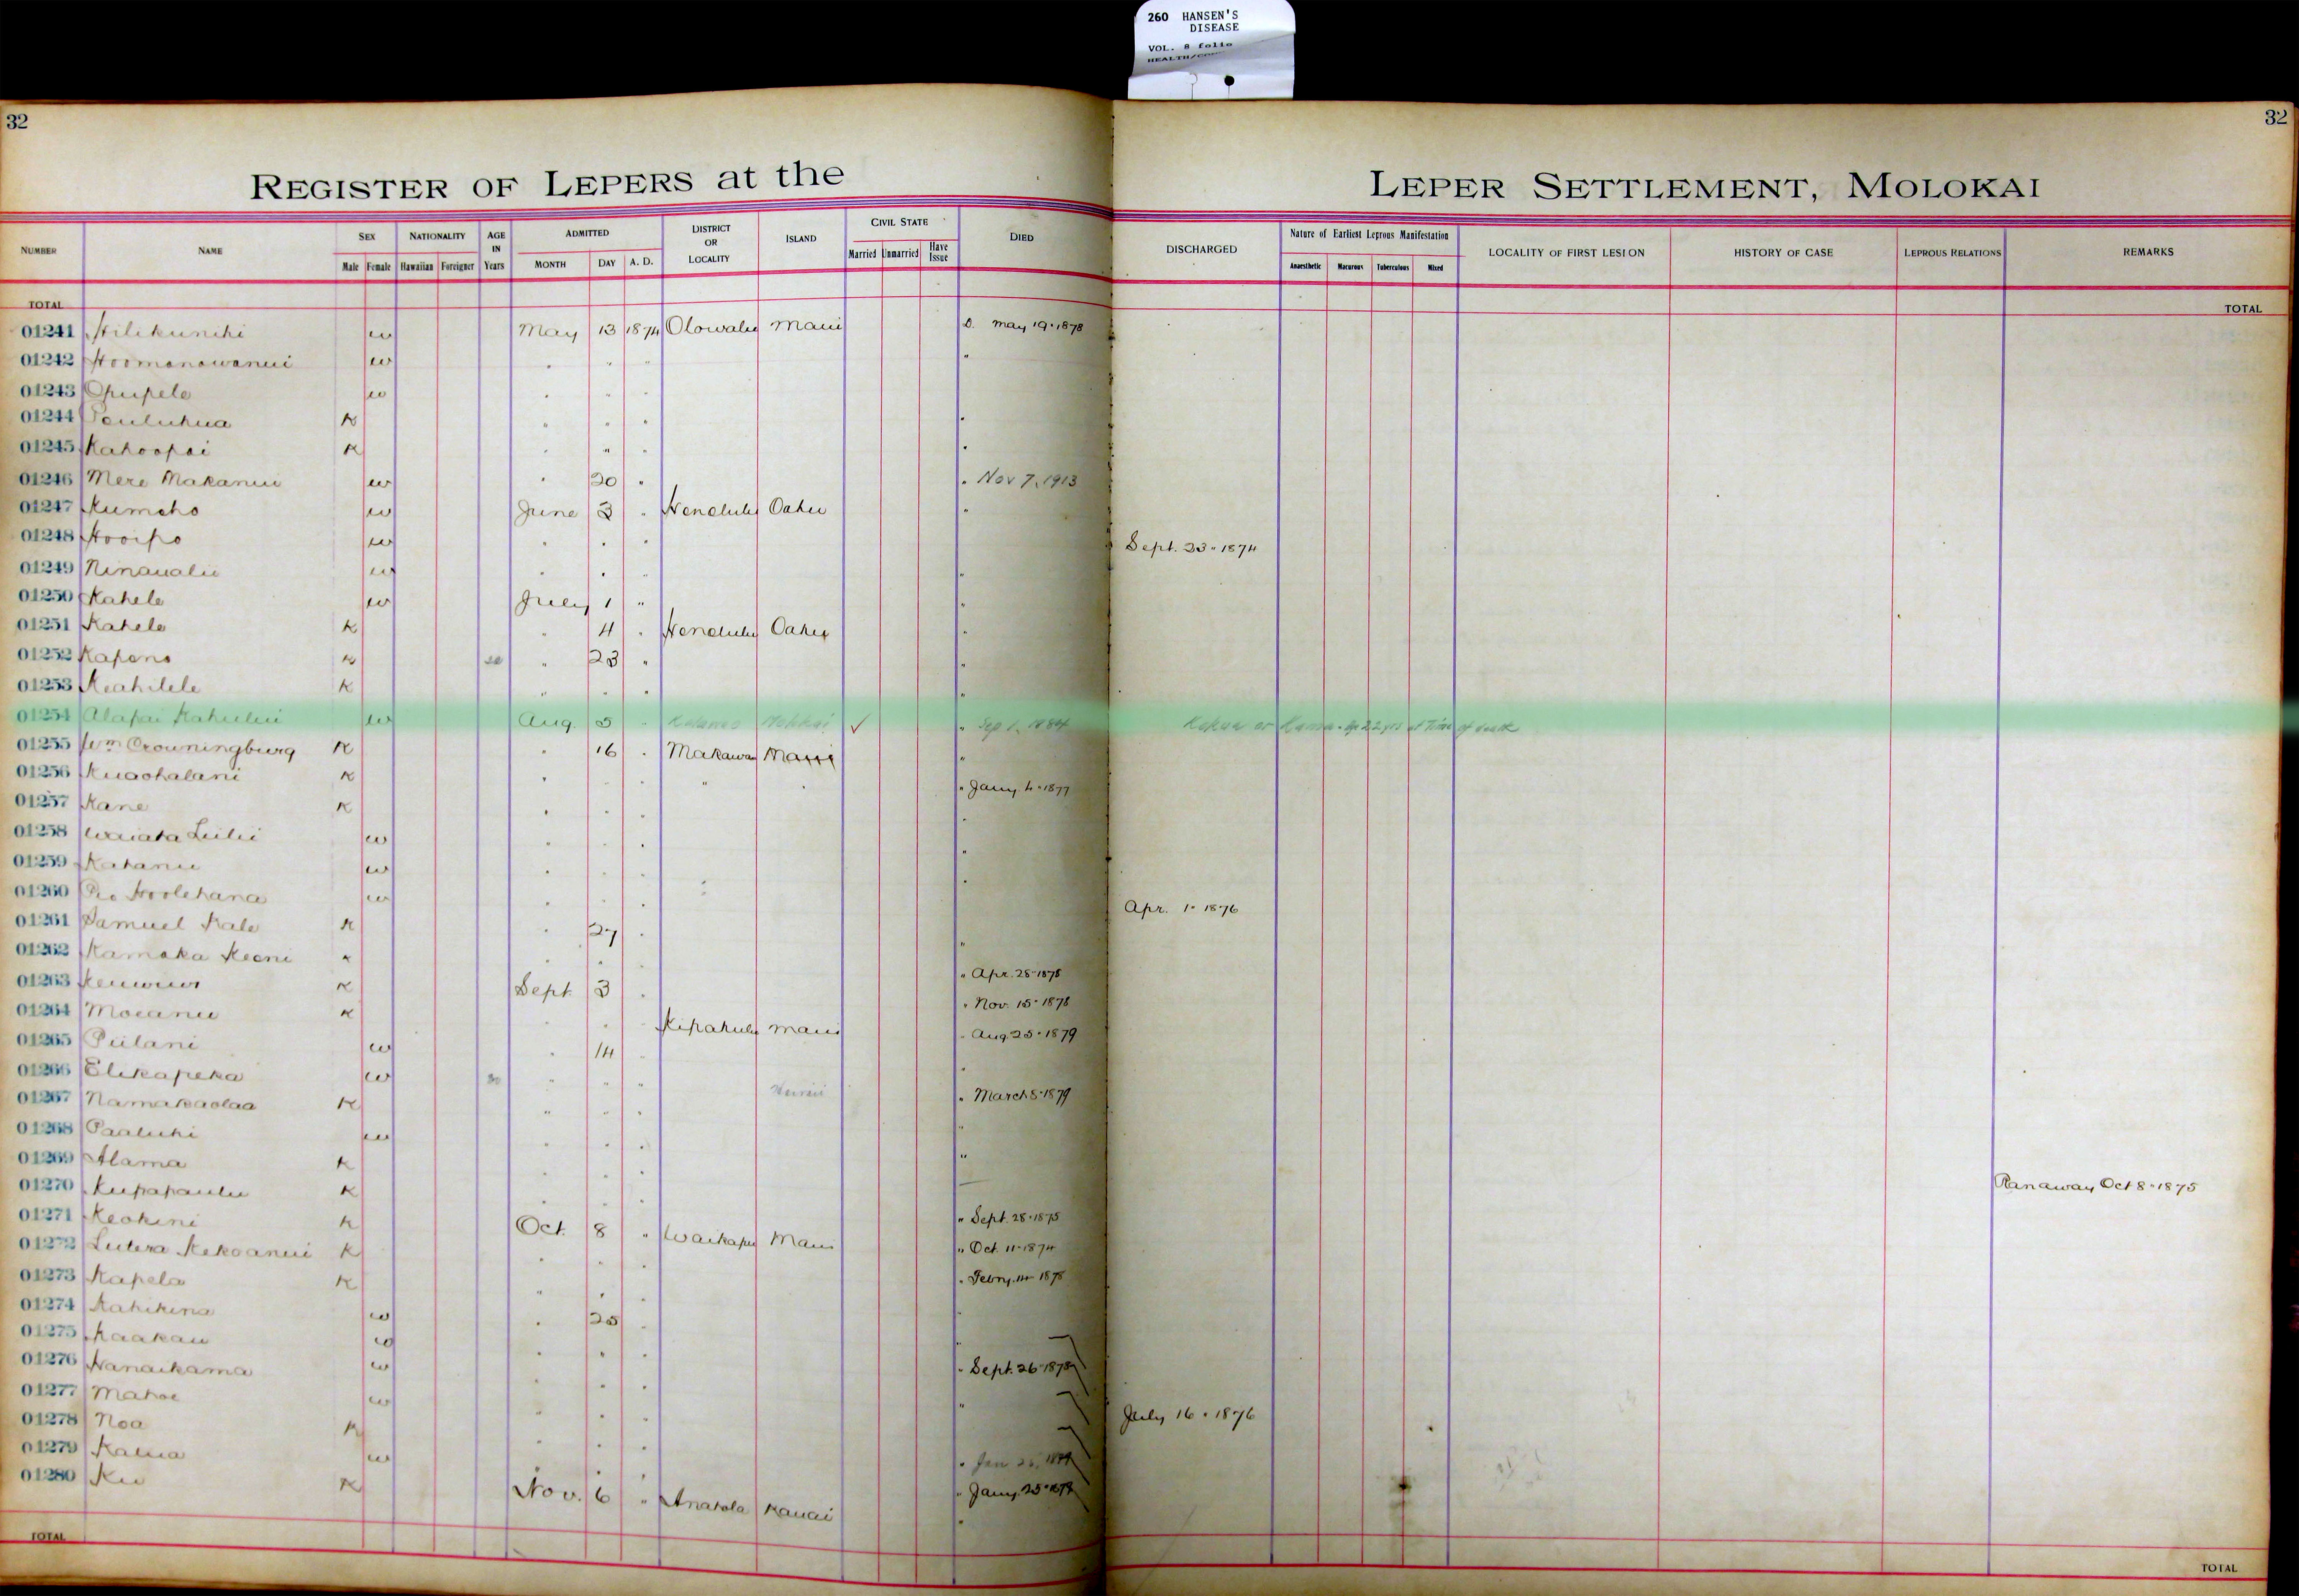 260 HANSEN'S
DISEASE
VOL. 8 folio
32
32
REGISTER OF LEPERS at the LEPER SETTLEMENT, MOLOKAI
NUMBER NAME SEX Male Female NATIONALITY Hawaiian Foreigner AGE IN Years ADMITTED MONTH DAY A. D. DISTRICT OR LOCALITY ISLAND CIVIL STATE Married Unmarried Have Issue DIED DISCHARGED Nature of Earliest Leprous Manifestation Anaesthetic Macurous Tuberculous Mixed LOCALITY OF FIRST LESION HISTORY OF CASE LEPROUS RELATIONS REMARKS
TOTAL TOTAL
01241 Hilikunihi w May 13 1874 Olowalu Maui D. May 19 · 1878
01242 Hoomanawanui w " " "
01243 Opupele w " " "
01244 K " " "
01245 Kahoopai K " " "
01246 Mere Makanui w " 20 " " Nov 7, 1913
01247 Kumeho w June 3 " Honolulu Oahu "
01248 Hooipo w " " " Sept. 23 · 1874
01249 Ninaualii w " " " "
01250 Kahele w July 1 " "
01251 Kahele K " 4 " Honolulu Oahu "
01252 Kapena K " 23 " "
01253 Keahilele K " " " "
01254 Alapai Kahului w Aug. 5 " Kalawao Molokai ✓ " Sep 1, 1884 Kokua or Kama - age 22 yrs at Time of death
01255 Wm Crowningburg K " 16 " Makawao Maui "
01256 Kuaohalani K " " " " " " Jany 4 · 1877
01257 Kane K " " " "
01258 Waiata Luilii w " " " "
01259 Kahanu w " " " "
01260 Pio Hoolehana w " " " Apr. 1 · 1876
01261 Samuel Kale K " 27 " "
01262 Kamaka Keoni K " " " " Apr. 28 · 1878
01263 K Sept. 3 " " Nov. 15 · 1878
01264 Moeanu K " " " Kipahulu Maui " Aug 25 · 1879
01265 Piilani w " 14 " "
01266 Elikapeka w 30 " " " Hawaii " March 5 · 1879
01267 Namakaolaa K " " " "
01268 Paaluhi w " " " "
01269 Alama K " " "
01270 Kupapaulu K " " " Ranaway Oct 8 · 1875
01271 Keokini K Oct. 8 " Waikapu Maui " Sept. 28 · 1875
01272 Lutera Kekoanui K " " " " Oct. 11 · 1874
01273 Kapela K " " " " Febry. 14 · 1878
01274 Kahikina w " 25 " "
01275 Kaakau w " " " "
01276 Hanaikama w " " " " Sept. 26 · 1878
01277 Mahoe w " " " "
01278 Noa K " " " July 16 · 1876
01279 Kalua w " " " " Jan
01280 Ku K Nov. 6 " Anahola Kauai " Jany. 25
TOTAL TOTAL